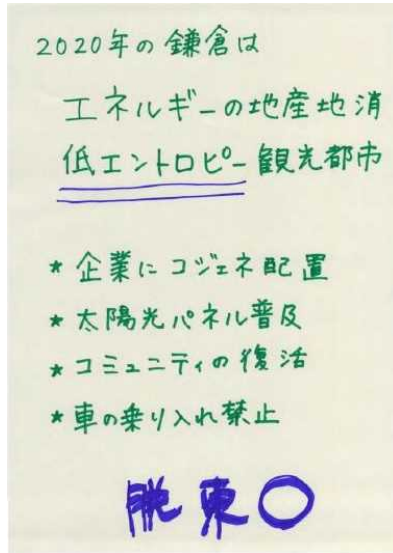 2020年の鎌倉は
エネルギーの地産地消
低エントロピー観光都市
* 企業にコジェネ配置
* 太陽光パネル普及
* コミュニティの復活
* 車の乗り入れ禁止
脱東○